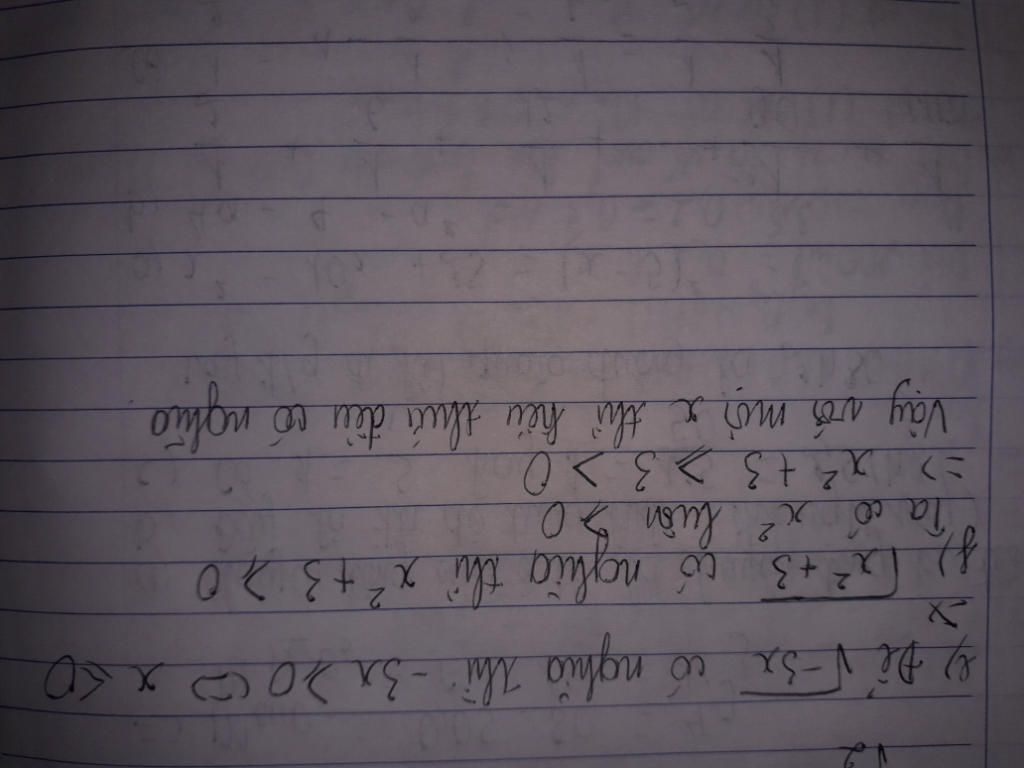 √2
e) Để √-3x có nghĩa thì -3x ≥ 0 ⇔ x ≤ 0
-x
f) √x² + 3 có nghĩa thì x² + 3 ≥ 0
Ta có x² luôn ≥ 0
=> x² + 3 ≥ 3 > 0
Vậy với mọi x thì biểu thức đều có nghĩa